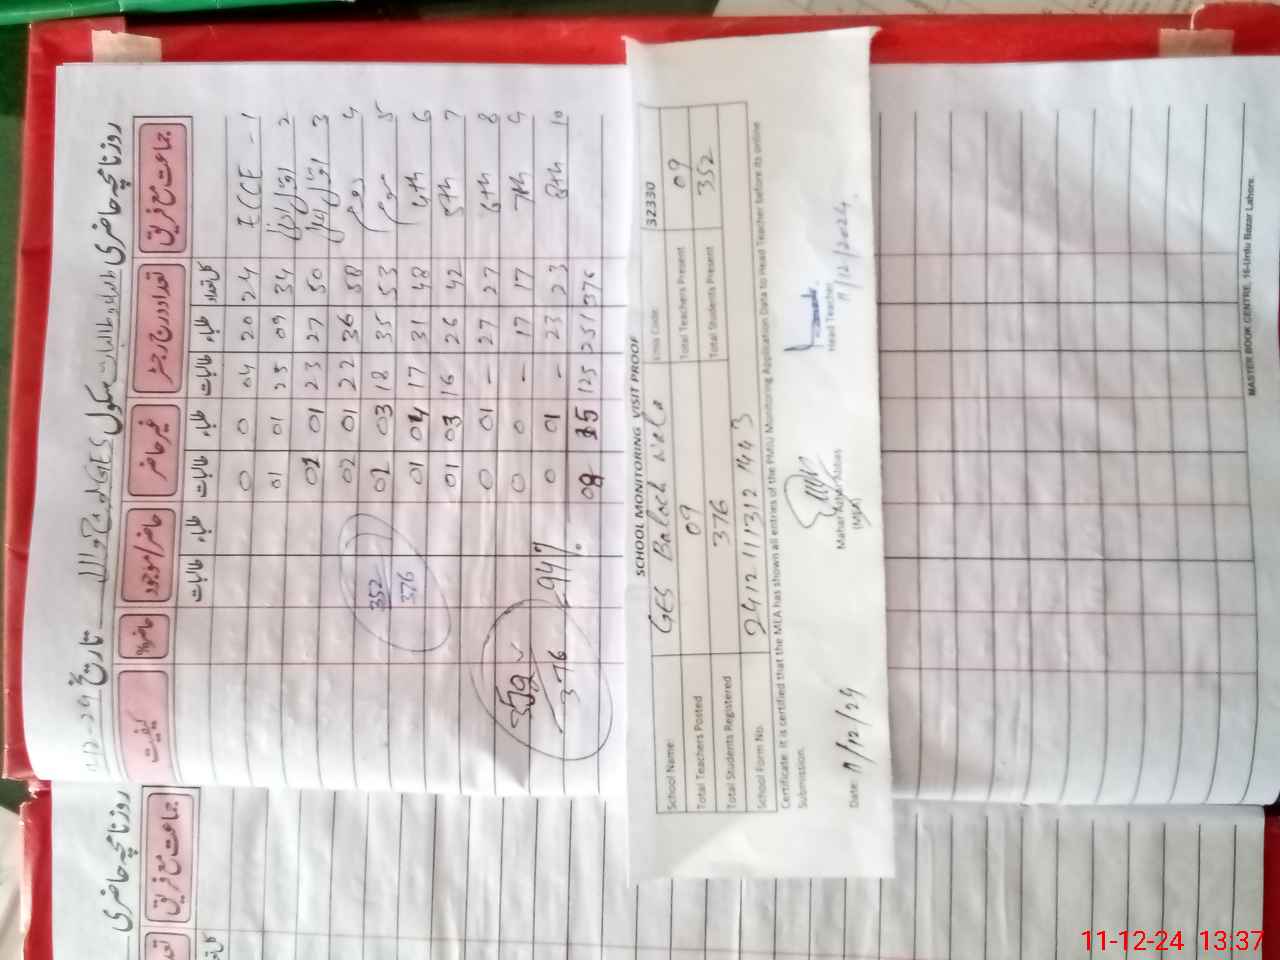 روزنامچہ حاضری طلباء و طالبات سکول GES بلوچ والا تاریخ 11-12-24
جماعت مع فریق تعداد درج رجسٹر غیر حاضر حاضر/موجود حاضر% کیفیت
کل تعداد طلباء طالبات طلباء طالبات طلباء طالبات
1 - ECCE 24 20 04 0 0
2 اول/ 34 09 25 01 01
3 اول/ 50 27 23 01 02
4 دوم 58 36 22 01 02
5 سوم 53 35 18 03 02
6 4th 48 31 17 04 01
7 5th 42 26 16 03 01
8 6th 27 27 - 01 0
9 7th 17 17 - 0 0
10 8th 23 23 - 01 0
376 251 125 15 08
352
376
352
376
94%
SCHOOL MONITORING VISIT PROOF
School Name: GES Balach Wala Emis Code: 32330
Total Teachers Posted 09 Total Teachers Present 09
Total Students Registered 376 Total Students Present 352
School Form No. 2412 111312 1443
Certificate: It is certified that the MEA has shown all entries of the PMIU Monitoring Application Data to Head Teacher before its online
Submission.
Date: 11/12/24
Mahar Azhar Abbas
(MEA)
Head Teacher
11/12/2024
MASTER BOOK CENTRE, 16-Urdu Bazar Lahore.
روزنامچہ حاضری
جماعت مع فریق
11-12-24 13:37